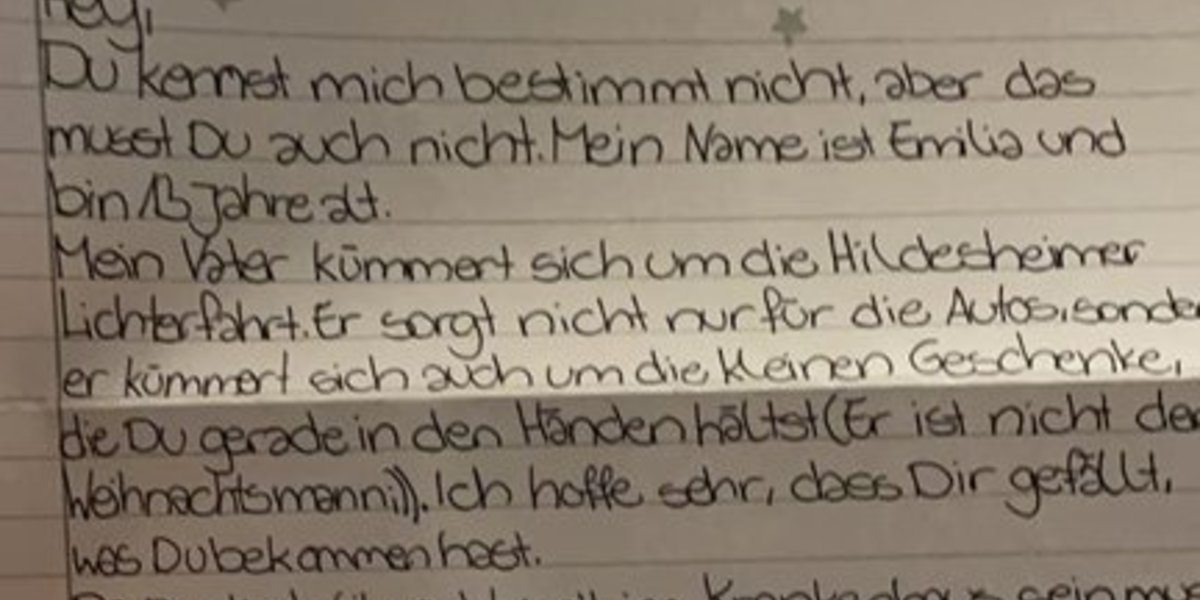 Hey,
Du kennst mich bestimmt nicht, aber das
musst Du auch nicht. Mein Name ist Emilia und
bin 13 Jahre alt.
Mein Vater kümmert sich um die Hildesheimer
Lichterfahrt. Er sorgt nicht nur für die Autos, sonde
er kümmert sich auch um die kleinen Geschenke,
die Du gerade in den Händen hältst (Er ist nicht de
Weihnachtsmann;)). Ich hoffe sehr, dass Dir gefällt,
was Du bekommen hast.